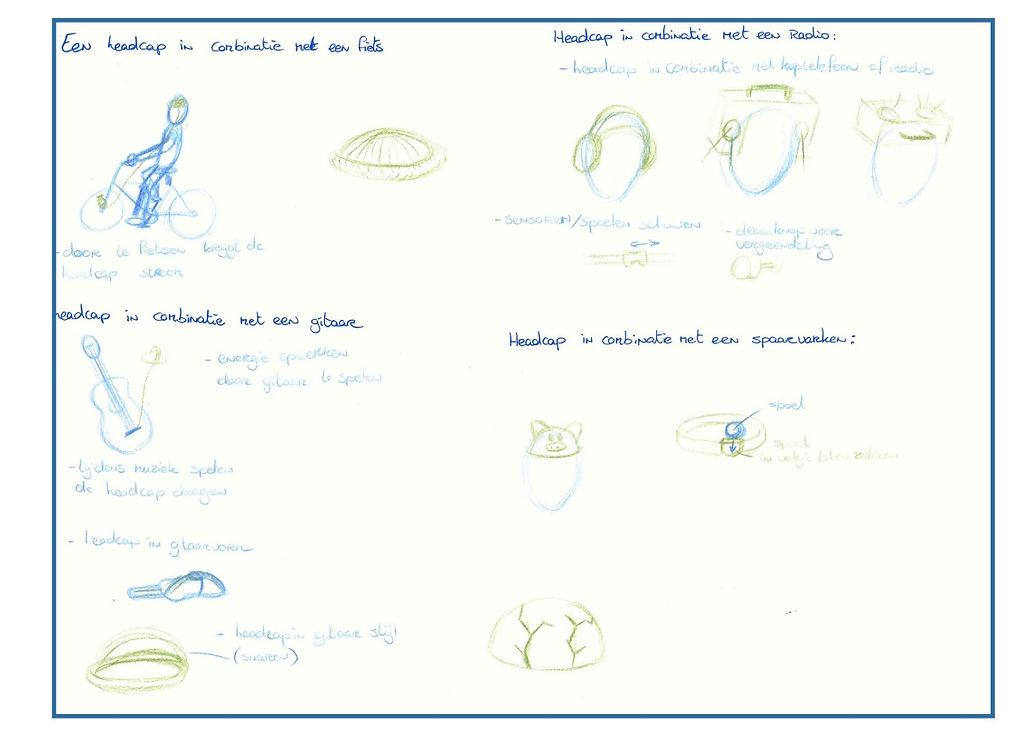 Een headcap in combinatie met een fiets
- door te fietsen krijgt de
headcap stroom
Headcap in combinatie met een Radio:
- headcap in combinatie met koptelefoon of radio
- sensoren/spoelen schuiven
- draaiknop voor
vergrendeling
headcap in combinatie met een gitaar
- energie opwekken
door gitaar te spelen
- tijdens muziek spelen
de headcap dragen
- headcap in gitaarvorm
- headcap in gitaar stijl
(snaren)
Headcap in combinatie met een spaarvarken:
spoel
spoel
in vakje laten zakken